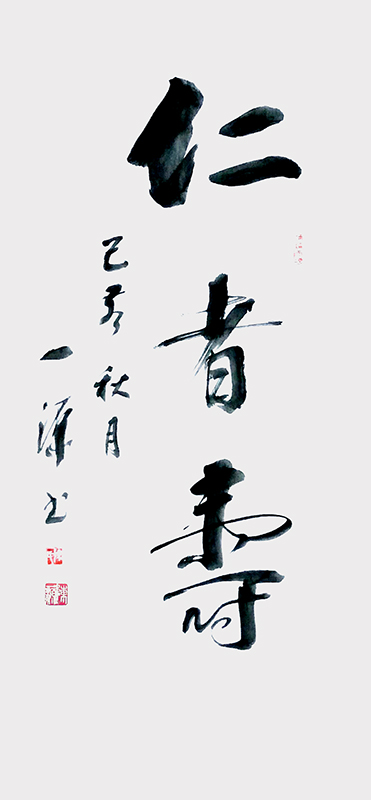 仁者壽
己亥秋月
一沣书